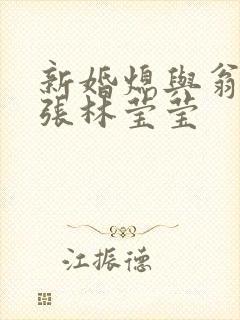 新婚熄與翁
張林莹莹
江振德